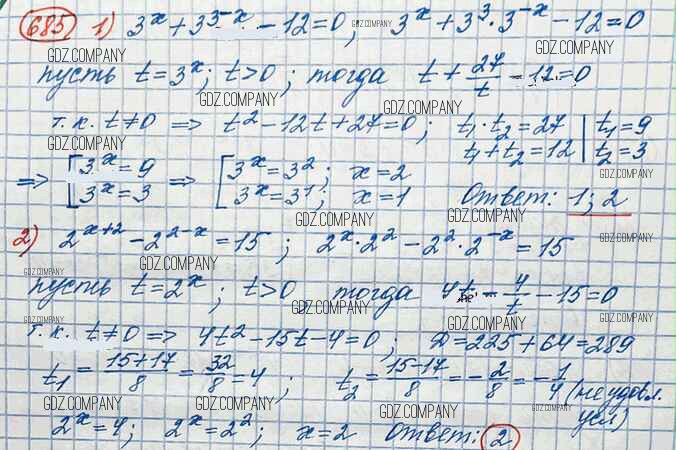 685 1) 3^x + 3^(3-x) - 12 = 0; 3^x + 3^3 · 3^(-x) - 12 = 0
GDZ.COMPANY GDZ.COMPANY GDZ.COMPANY
пусть t = 3^x; t > 0; тогда t + 27/t - 12 = 0
GDZ.COMPANY GDZ.COMPANY
т.к. t ≠ 0 => t^2 - 12t + 27 = 0; t1 · t2 = 27 | t1 = 9
t1 + t2 = 12 | t2 = 3
GDZ.COMPANY GDZ.COMPANY
=> [3^x = 9 => [3^x = 3^2; x = 2
3^x = 3 3^x = 3^1; x = 1 Ответ: 1; 2
GDZ.COMPANY GDZ.COMPANY
2) 2^(x+2) - 2^(2-x) = 15; 2^x · 2^2 - 2^2 · 2^(-x) = 15
GDZ.COMPANY GDZ.COMPANY GDZ.COMPANY
пусть t = 2^x; t > 0, тогда 4t - 4/t - 15 = 0
GDZ.COMPANY GDZ.COMPANY
GDZ.COMPANY GDZ.COMPANY GDZ.COMPANY
т.к. t ≠ 0 => 4t^2 - 15t - 4 = 0; D = 225 + 64 = 289
t1 = (15+17)/8 = 32/8 = 4; t2 = (15-17)/8 = -2/8 = -1/4 (не удовл.
усл)
GDZ.COMPANY GDZ.COMPANY GDZ.COMPANY GDZ.COMPANY
2^x = 4; 2^x = 2^2; x = 2 Ответ: 2